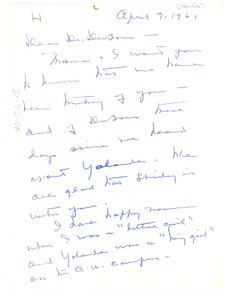 H
April 9, 1961
Dear Dr. DuBois —
Mama & I want you
to know that we have
been thinking of you —
and of DuBois these
days since we heard
about Yolande. We
are glad that Shirley is
with you.
I have happy mem
when I was a "little girl"
and Yolande was a "big girl"
on the A.U. campus —